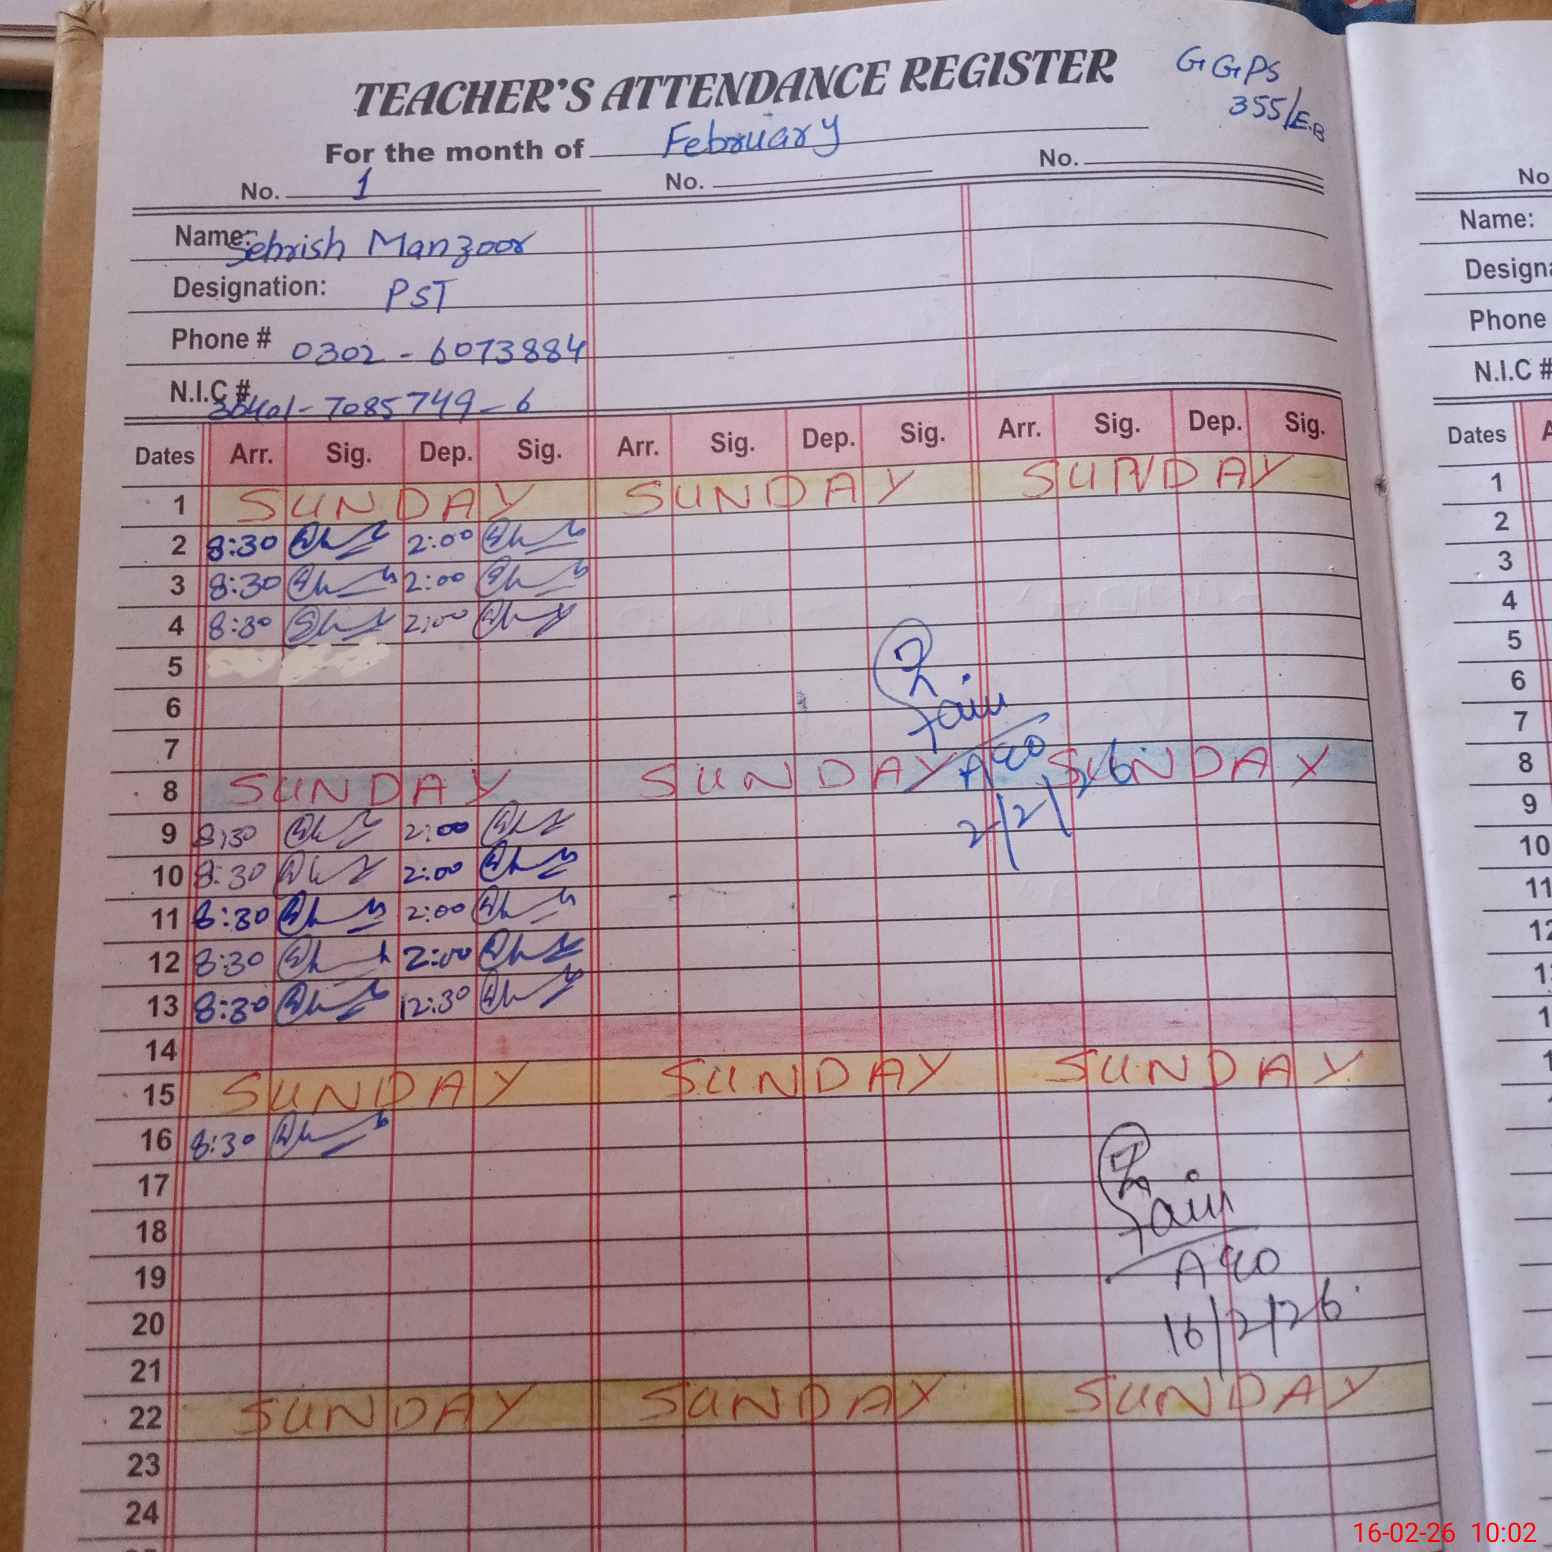 TEACHER'S ATTENDANCE REGISTER
G GPS
355/E.B
For the month of February
No. 1 No. No.
Name: Sehrish Manzoor
Designation: PST
Phone # 0302 - 6073884
N.I.C # -7085749-6
Dates Arr. Sig. Dep. Sig. Arr. Sig. Dep. Sig. Arr. Sig. Dep. Sig.
1 SUNDAY SUNDAY SUNDAY
2 8:30 2:00
3 8:30 2:00
4 8:30 2:00
5
6
7
8 SUNDAY SUNDAY SUNDAY
2/2/26
9 8:30 2:00
10 8:30 2:00
11 8:30 2:00
12 8:30 2:00
13 8:30 12:30
14
15 SUNDAY SUNDAY SUNDAY
16 8:30
17
18
19
20
16/2/26
21
22 SUNDAY SUNDAY SUNDAY
23
24
No
Name:
Design
Phone
N.I.C #
Dates
1
2
3
4
5
6
7
8
9
10
11
12
16-02-26 10:02